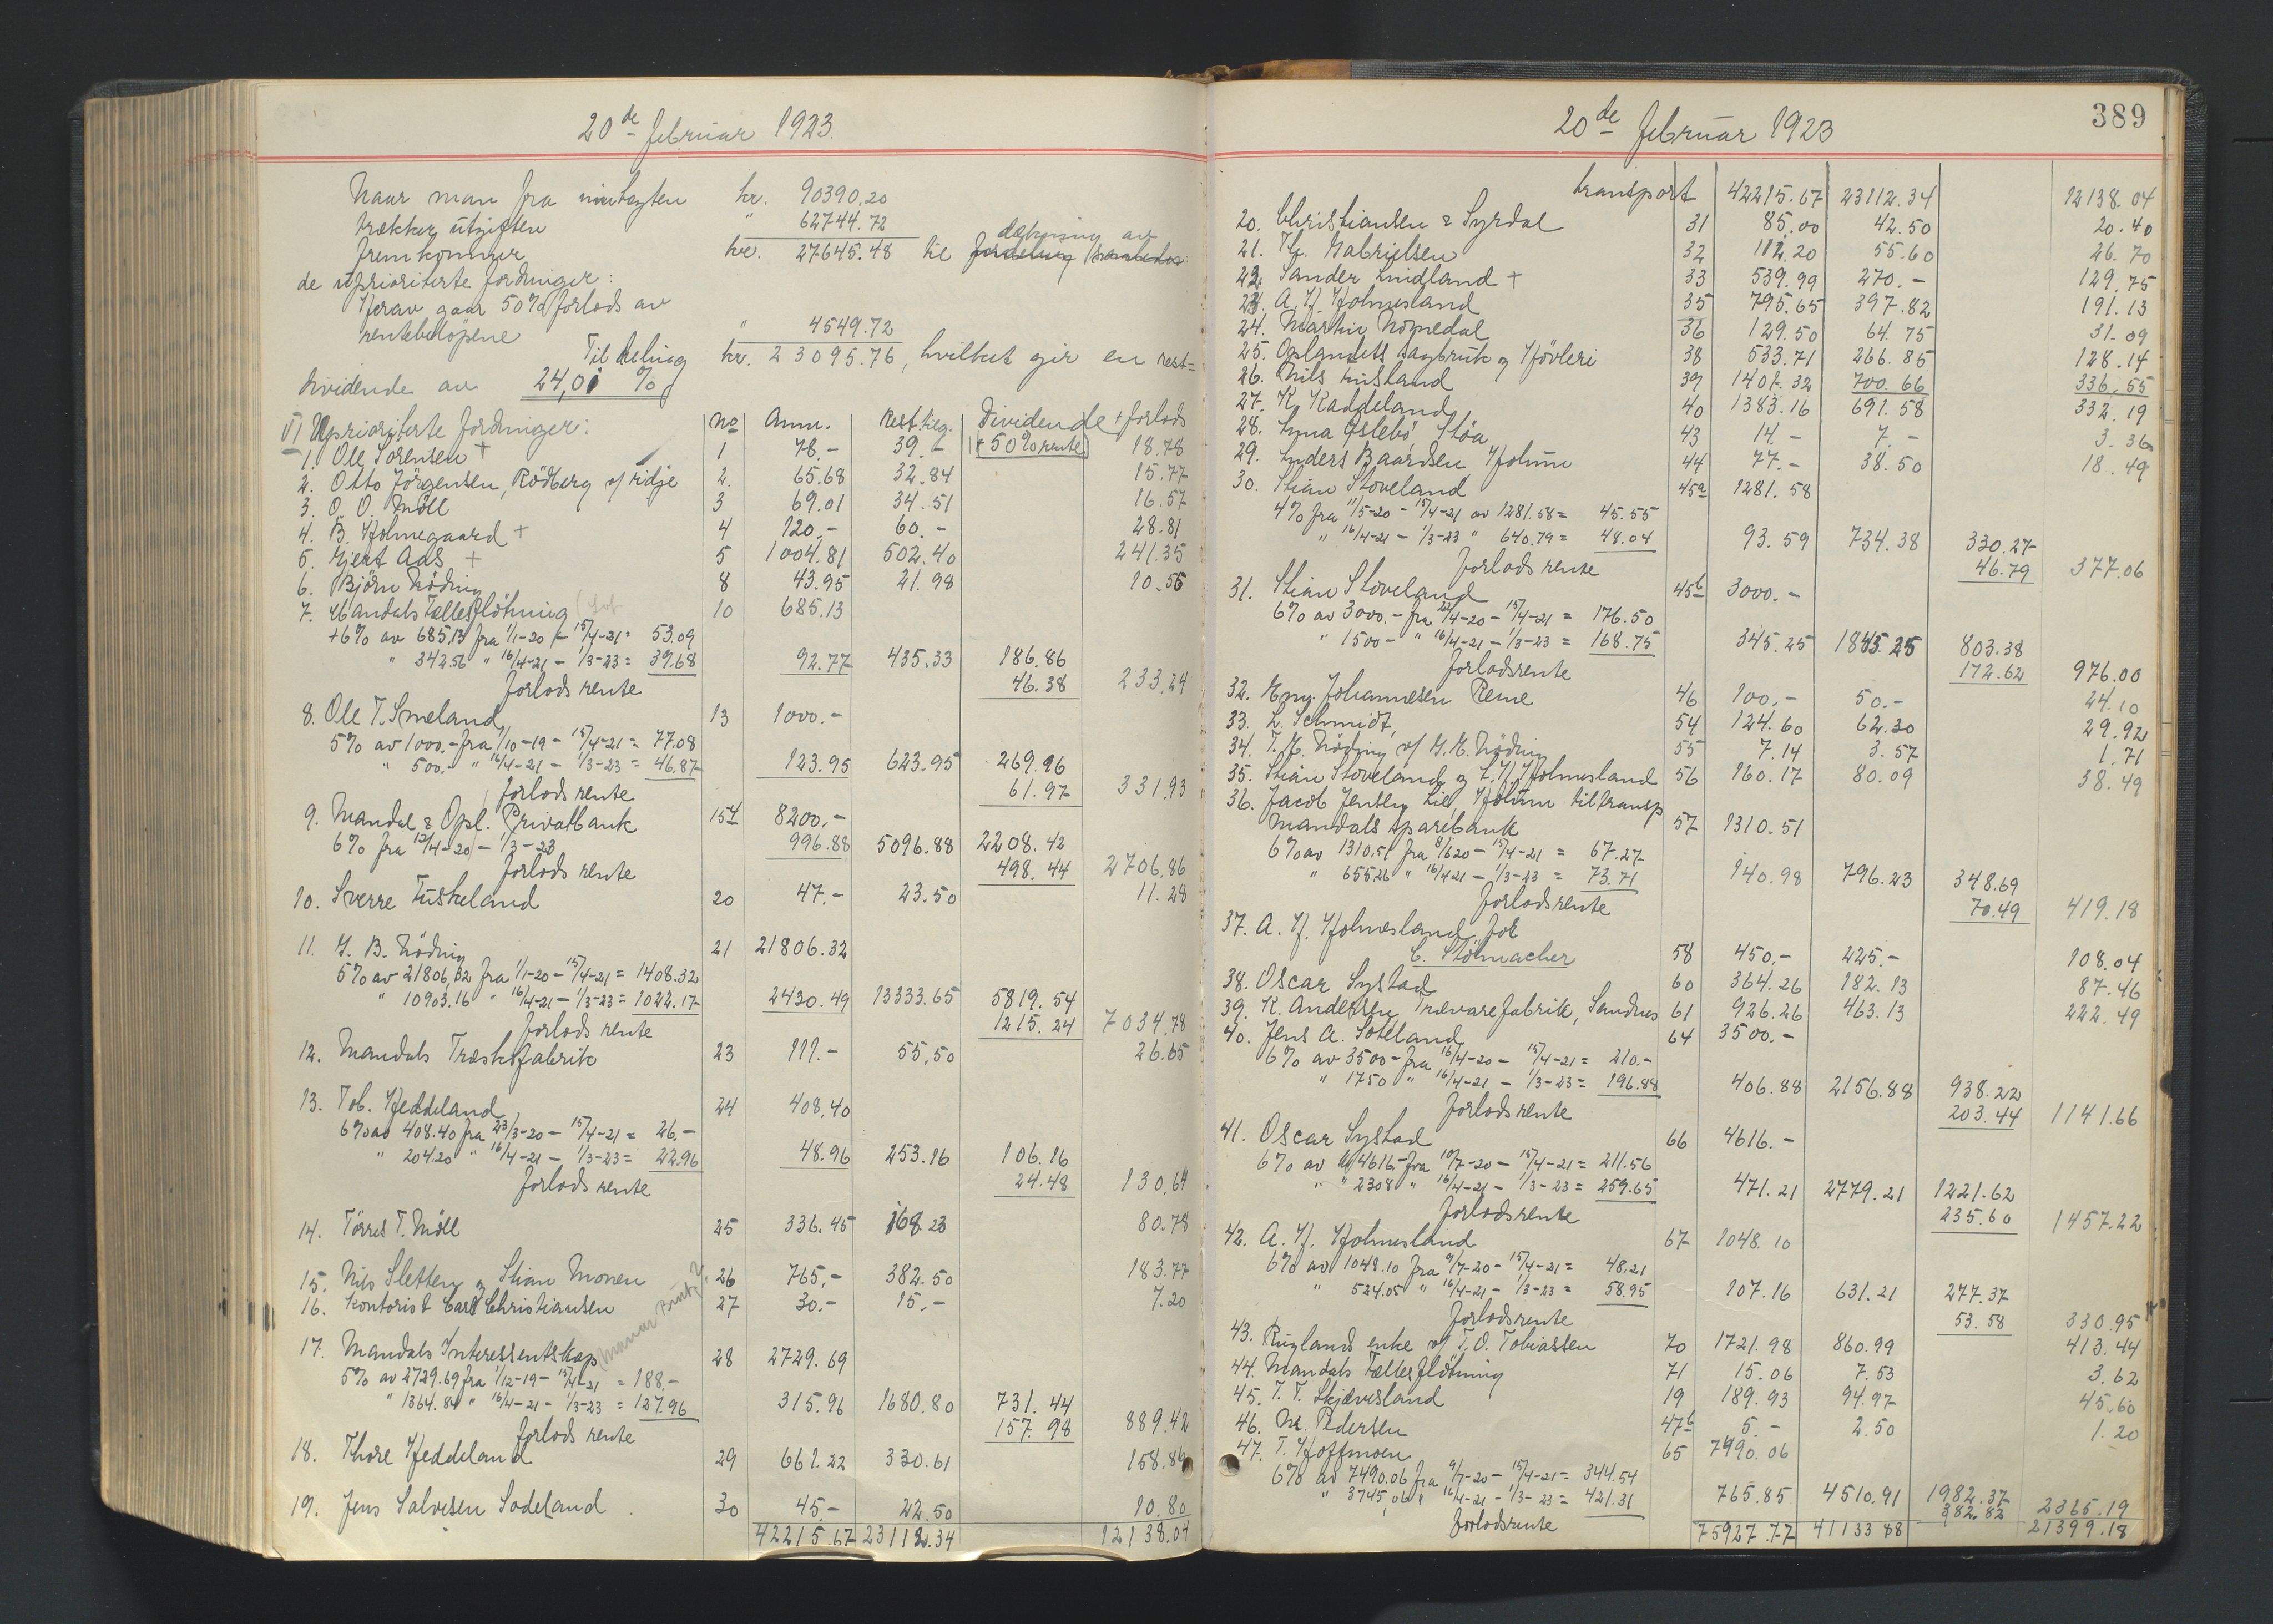 20de februar 1923.
Naar man fra indtægten kr. 90390.20
trækker utgiften " 62744.72
fremkommer kr. 27645.48 til fordeling dækning av
de uprioriterte fordringer:
Herav gaar 50% forlods av
rentebeløpene " 4549.72
Til deling kr. 23095.76, hvilket gir en rest=
dividende av 24,01 %
VI Uprioriterte fordringer: No Anm. Rest.beg. Dividende + forlods
1. Ole Sørensen + 1 78.- 39.- (+ 50% rente) 18.78
2. Otto Jörgensen, Rödberg 2. 65.68 32.84 15.77
3. O. O. Möll 3 69.01 34.51 16.57
4. B. Holmegaard + 4 120.- 60.- 28.81
5. Gjert Aas + 5 1004.81 502.40 241.35
6. Björn Nöding 8 43.95 21.98 10.55
7. Mandals Fællesflötning 10 685.13
+6% av 685.13 fra 1/1-20 - 15/4-21 = 53.09
" 342.56 " 16/4-21 - 1/3-23 = 39.68 92.77 435.33 186.86
Forlods rente 46.38 233.24
8. Ole T. Smeland 13 1000.-
5% av 1000.- fra 1/10-19 - 15/4-21 = 77.08
" 500.- " 16/4-21 - 1/3-23 = 46.87 123.95 623.95 269.96
forlods rente 61.97 331.93
9. Mandal & Opl. Privatbank 154 8200.-
6% fra 12/4-20 - 1/3-23 996.88 5096.88 2208.42
forlods rente 498.44 2706.86
10. Sverre Tuskeland 20 47.- 23.50 11.28
11. G. B. Nöding 21 21806.32
5% av 21806,32 fra 1/1-20 - 15/4-21 = 1408.32
" 10903.16 " 16/4-21 - 1/3-23 = 1022.17 2430.49 13333.65 5819.54
forlods rente 1215.24 7034.78
12. Mandals Træskofabrik 23 111.- 55,50 26.65
13. Tob. Heddeland 24 408,40
6% av 408.40 fra 23/3-20 - 15/4-21 = 26.-
" 204.20 " 16/4-21 - 1/3-23 = 22.96 48.96 253.16 106.16
Forlods rente 24.48 130.64
14. Törres T. Möll 25 336.45 168.23 80.78
15. Nils Sletten og Stian Monen 26 765.- 382.50 183.77
16. Kontorist Carl Christiansen 27 30.- 15.- 7.20
17. Mandals Interessentskap 28 2729.69
5% av 2729.69 fra 1/12-19 - 15/4-21 = 188.-
" 1364.84 " 16/4-21 - 1/3-23 = 127.96 315.96 1680.80 731.44
forlods rente 157.98 889.42
18. Thore Heddeland 29 661.22 330.61 158.86
19. Jens Salvesen Sodeland 30 45.- 22.50 10.80
42215.67 23112.34 12138.04
20de februar 1923
389
transport 42215.67 23112.34 12138.04
20. Christiansen & Syrdal 31 85.00 42.50 20.40
21. Th. Gabrielsen 32 112.20 55.60 26.70
22. Sander Lindland + 33 539.99 270.- 129.75
23. A. H. Holmesland 35 795.65 397.82 191.13
24. Martin Nomedal 36 129.50 64.75 31.09
25. Oplandets Sagbruk og Hövleri 38 533.71 266.85 128.14
26. Nils Lusland 39 1401.32 700.66 336.55
27. K. Kaddeland 40 1383.16 691.58 332.19
28. Anna Øslebö, Stöa 43 14.- 7.- 3.36
29. Anders Baardsen Holum 44 77.- 38.50 18.49
30. Stian Stoveland 45a 1281.58
4% fra 11/5-20 - 15/4-21 av 1281.58 = 45.55
" 16/4-21 - 1/3-23 " 640.79 = 48.04 93.59 734.38 330.27
Forlods rente 46.79 377.06
31. Stian Stoveland 45b 3000.-
6% av 3000.- fra 22/4-20 - 15/4-21 = 176.50
" 1500.- " 16/4-21 - 1/3-23 = 168.75 345.25 1845.25 803.38
Forlodsrente 172.62 976.00
32. Johannesen Reme 46 100.- 50.- 24.10
33. L. Schmidt 54 124.60 62.30 29.92
34. T. G. Nöding v/ G. G. Nöding 55 7.14 3.57 1.71
35. Stian Stoveland og L. H. Holmesland 56 160.17 80.09 38.49
36. Jacob Jensen Lie, Holum til transp
Mandals Sparebank 57 1310.51
6% av 1310.51 fra 8/6 20 - 15/4-21 = 67.27
" 655.26 " 16/4 21 - 1/3-23 = 73.71 140.98 796.23 348.69
Forlodsrente 70.49 419.18
37. A. H. Holmesland for
C. Stömacher 58 450.- 225.- 108.04
38. Oscar Systad 60 364.26 182.13 87.46
39. K. Andersen Trævarefabrik, Sandnes 61 926.26 463.13 222.49
40. Jens A. Soteland 64 3500.-
6% av 3500.- fra 16/4-20 - 15/4-21 = 210.-
" 1750 " 16/4-21 - 1/3-23 = 196.88 406.88 2156.88 938.22
Forlodsrente 203.44 1141.66
41. Oscar Systad 66 4616.-
6% av 4616.- fra 10/7-20 - 15/4-21 = 211.56
" " 2308 " 16/4-21 - 1/3-23 = 259.65 471.21 2779.21 1221.62
Forlodsrente 235.60 1457.22
42. A. H. Holmesland 67 1048.10
6% av 1048.10 fra 9/7-20 - 15/4-21 = 48.21
" 524.05 " 16/4-21 - 1/3-23 = 58.95 107.16 631.21 277.37
Forlodsrente 53.58 330.95
43. Ruglands enke v/ T. O. Tobiassen 70 1721.98 860.99 413.44
44. Mandals Fællesflötning 71 15.06 7.53 3.62
45. T. T. Skjævesland 19 189.93 94.97 45.60
46. M. Pedersen 47b 5.- 2.50 1.20
47. T. Hoffmoen 65 7490.06
6% av 7490.06 fra 9/7-20 - 15/4-21 = 344.54
" 3745.06 " 16/4-21 - 1/3-23 = 421.31 765.85 4510.91 1982.37
Forlodsrente 382.82 2365.19
75927.77 41133 88 21399.18